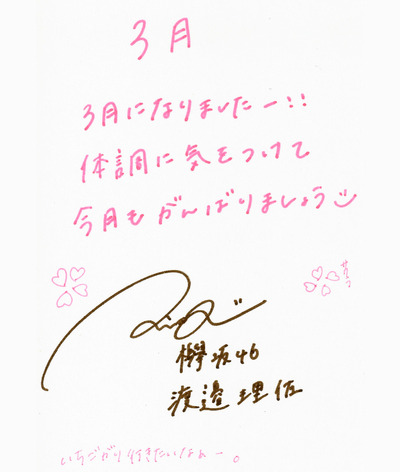 3月
3月になりましたー!!
体調に気をつけて
今月もがんばりましょう
サクラ
欅坂46
渡邉理佐
いちごがり行きたいなぁー。